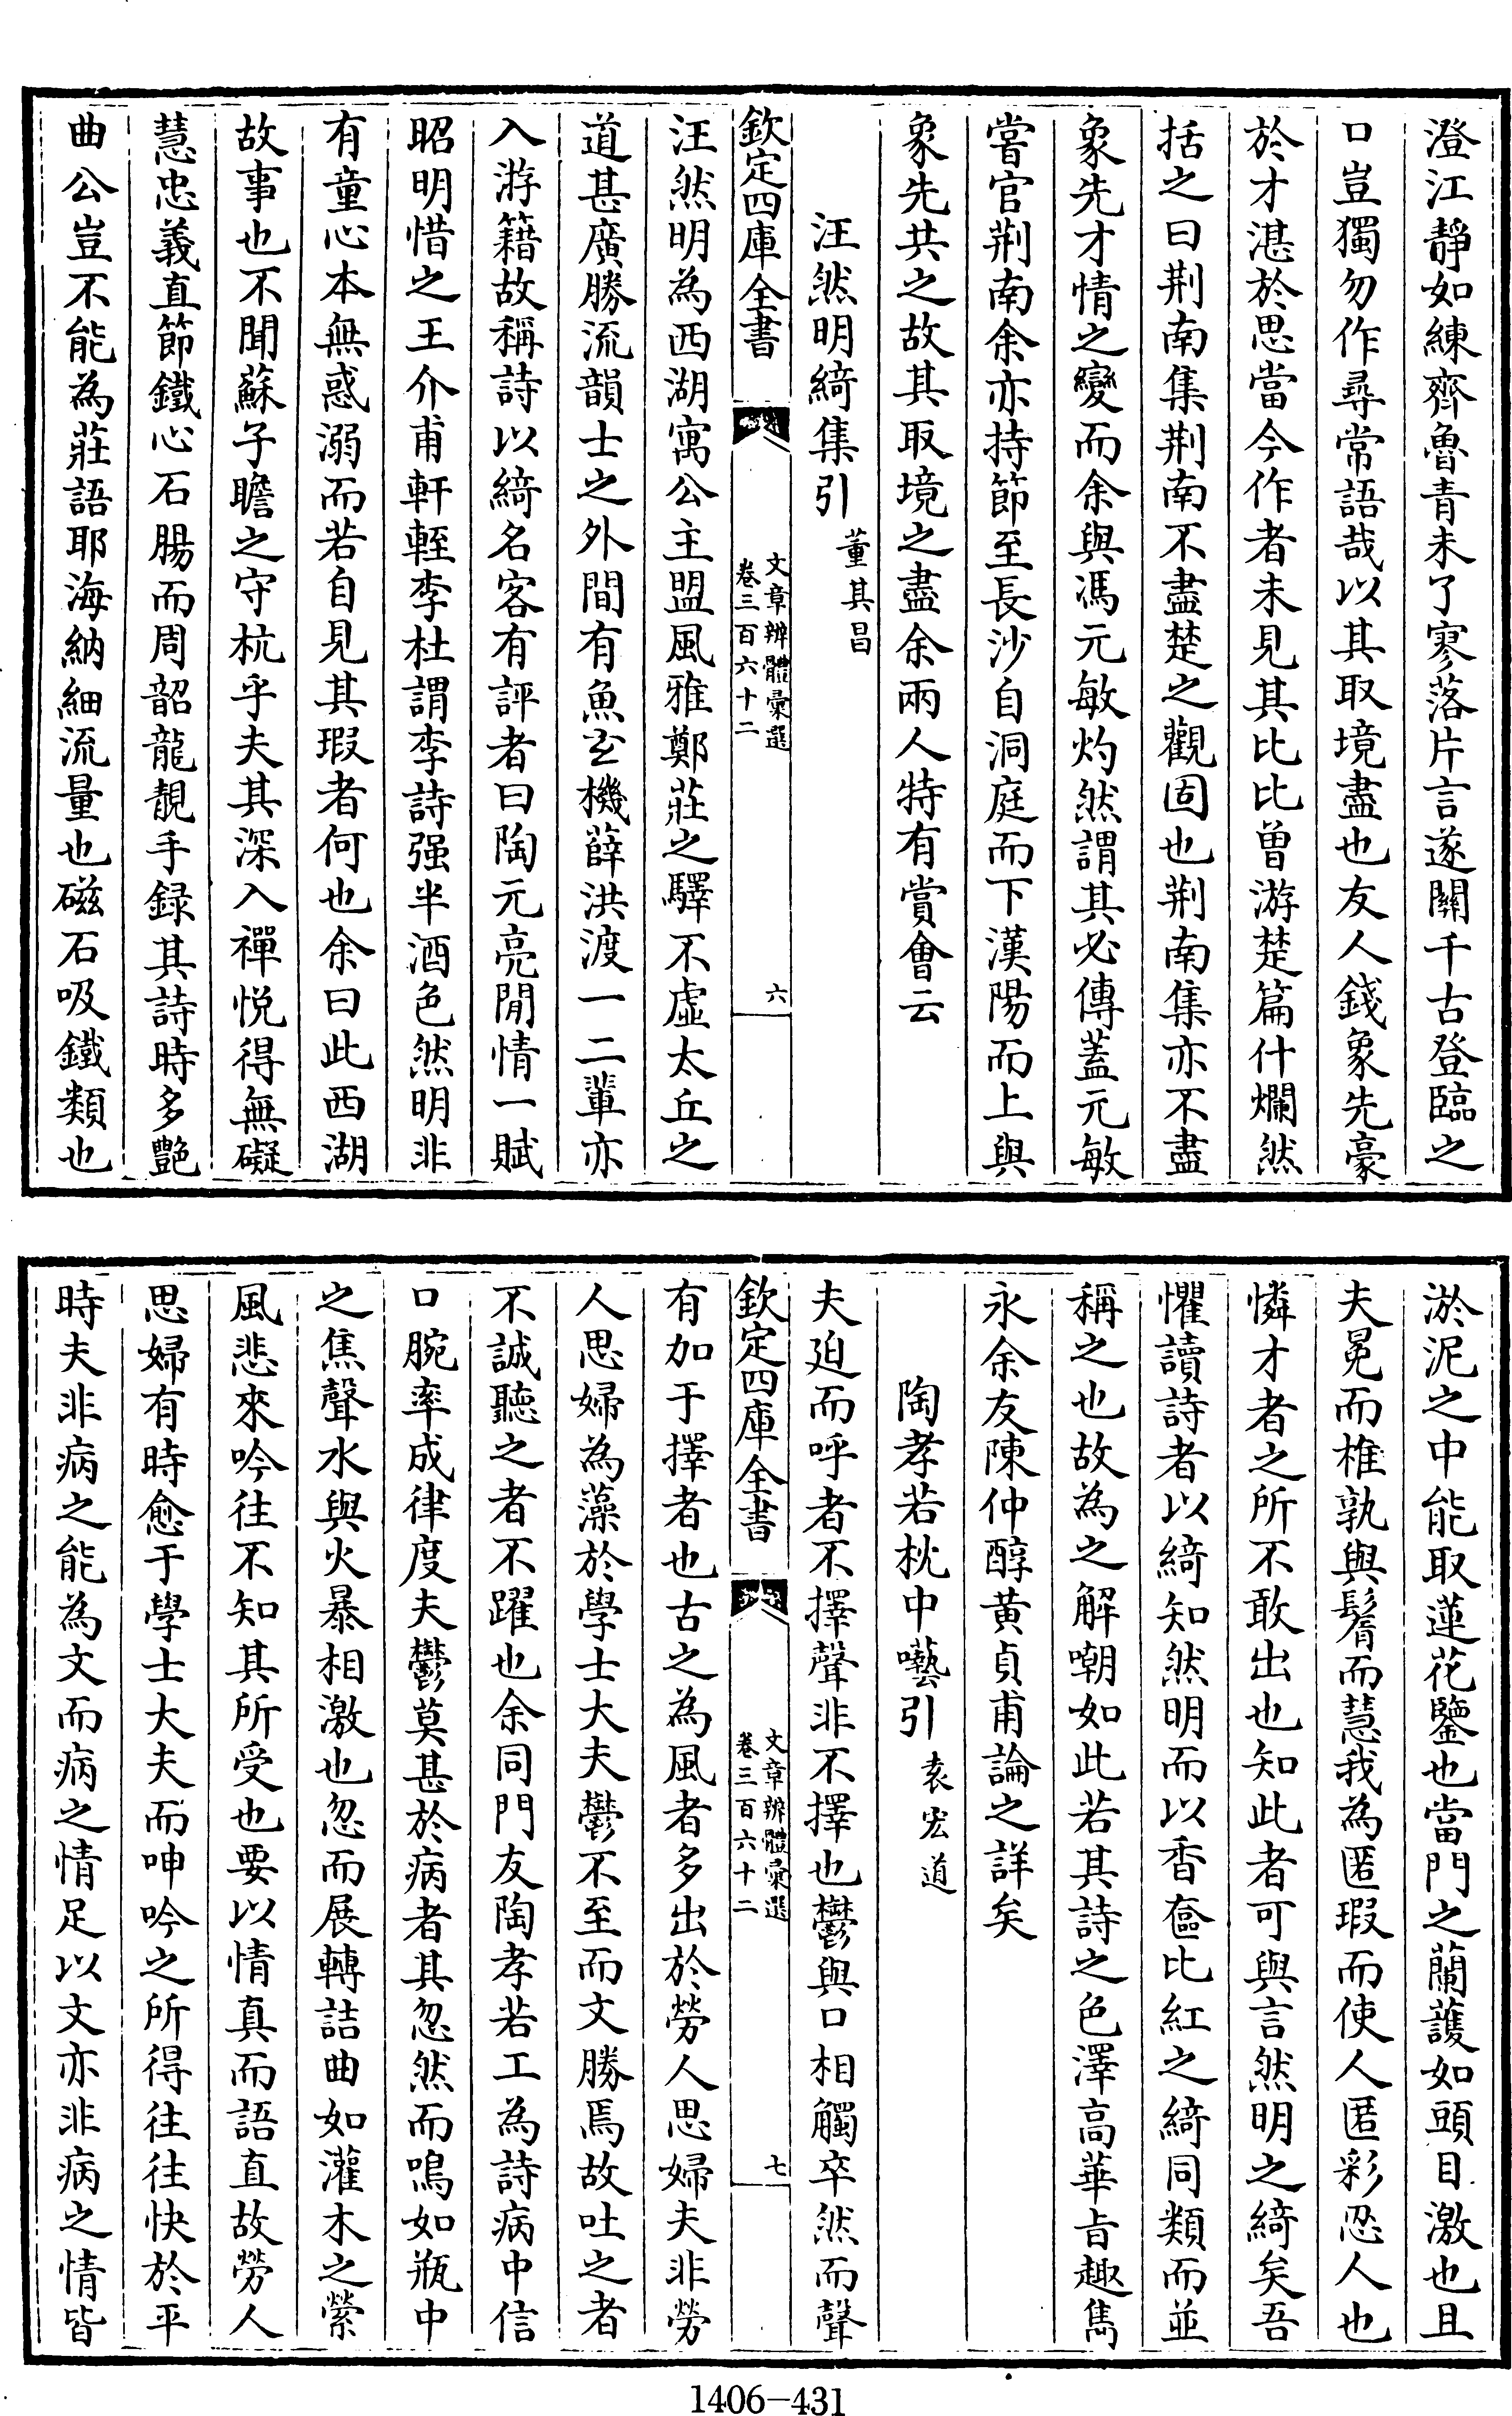 澄江靜如練齊魯青未了寒落片言遂關千古登臨之
口豈獨勿作尋常語哉以其取境盡也友人錢象先豪
於才湛於思當今作者未見其比比曽游楚篇什爛然
括之曰荆南集荆南不盡楚之觀固也荆南集亦不盡
象先才情之變而余與馮元敏灼然謂其必傳蓋元敏
嘗官荆南余亦持節至長沙自洞庭而下漢陽而上與
象先共之故其取境之盡余兩人特有賞會云
汪然明綺集引董其昌
欽定四庫全書
文章辨體彚選
卷三百六十二
六
汪然明為西湖寓公主盟風雅鄭莊之驛不虛太丘之
道甚廣勝流韻士之外間有魚玄機薛洪渡一二輩亦
入游籍故稱詩以綺名客有評者曰陶元亮閒情一賦
昭明惜之王介甫軒輊李杜謂李詩强半酒色然明非
有童心本無惑溺而若自見其瑕者何也余曰此西湖
故事也不聞蘇子瞻之守杭乎夫其深入禪悅得無礙
慧忠義直節鐵心石腸而周韶龍靚手録其詩時多艷
曲公豈不能為莊語耶海納細流量也磁石吸鐵類也
淤泥之中能取蓮花鑒也當門之蘭護如頭目激也且
夫冕而椎孰與髾而慧我為匿瑕而使人匿彩忍人也
憐才者之所不敢出也知此者可與言然明之綺矣吾
懼讀詩者以綺知然明而以香奩比紅之綺同類而並
稱之也故為之解嘲如此若其詩之色澤高華㫖趣雋
永余友陳仲醇黄貞甫論之詳矣
陶孝若枕中囈引袁宏道
夫迫而呼者不擇聲非不擇也鬱與口相觸卒然而聲
欽定四庫全書
文章辨體彚選
卷三百六十二
七
有加于擇者也古之為風者多出於勞人思婦夫非勞
人思婦為藻於學士大夫鬱不至而文勝焉故吐之者
不誠聽之者不躍也余同門友陶孝若工為詩病中信
口腕率成律度夫鬱莫甚於病者其忽然而鳴如瓶中
之焦聲水與火暴相激也忽而展轉詰曲如灌木之縈
風悲來吟往不知其所受也要以情真而語直故勞人
思婦有時愈于學士大夫而呻吟之所得往往快於平
時夫非病之能為文而病之情足以文亦非病之情皆
1406-431